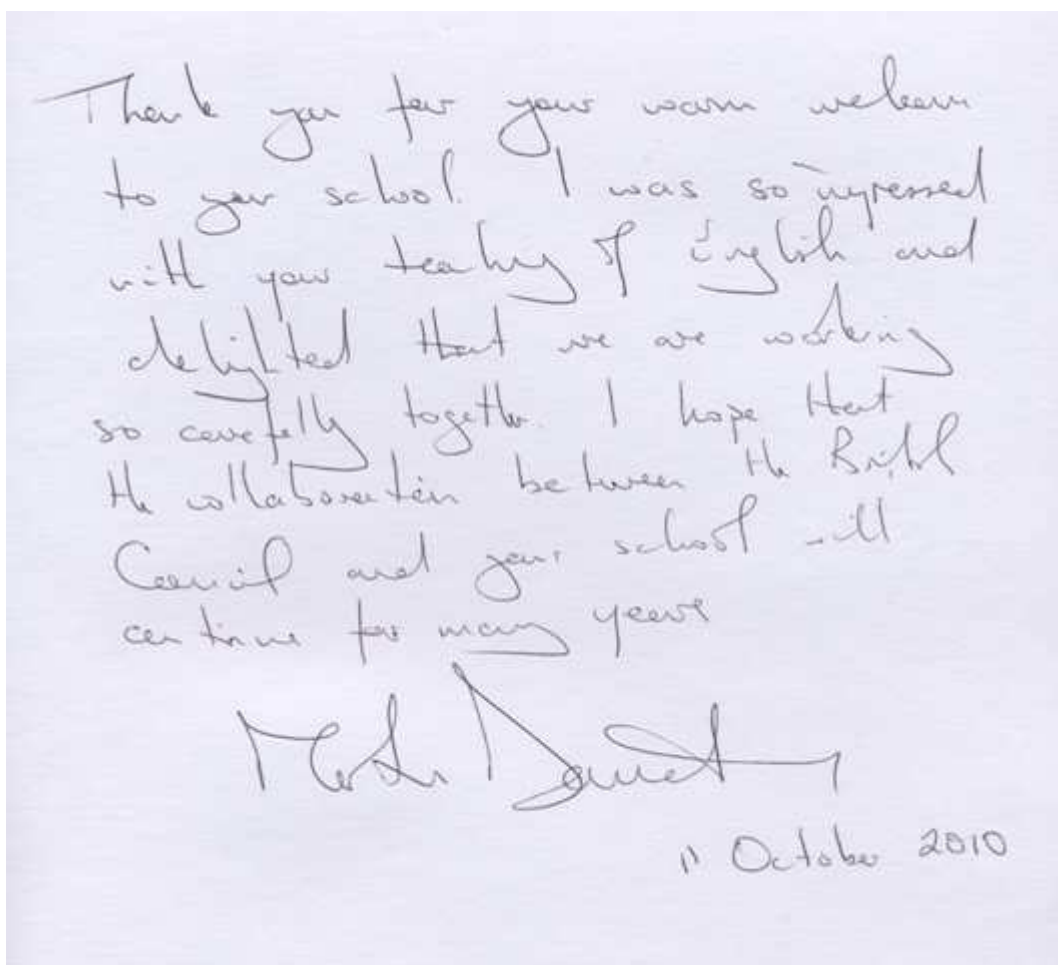 Thank you for your warm welcome
to your school. I was so impressed
with your teaching of English and
delighted that we are working
so carefully together. I hope that
the collaboration between the British
Council and your school will
continue for many years
Martin
11 October 2010